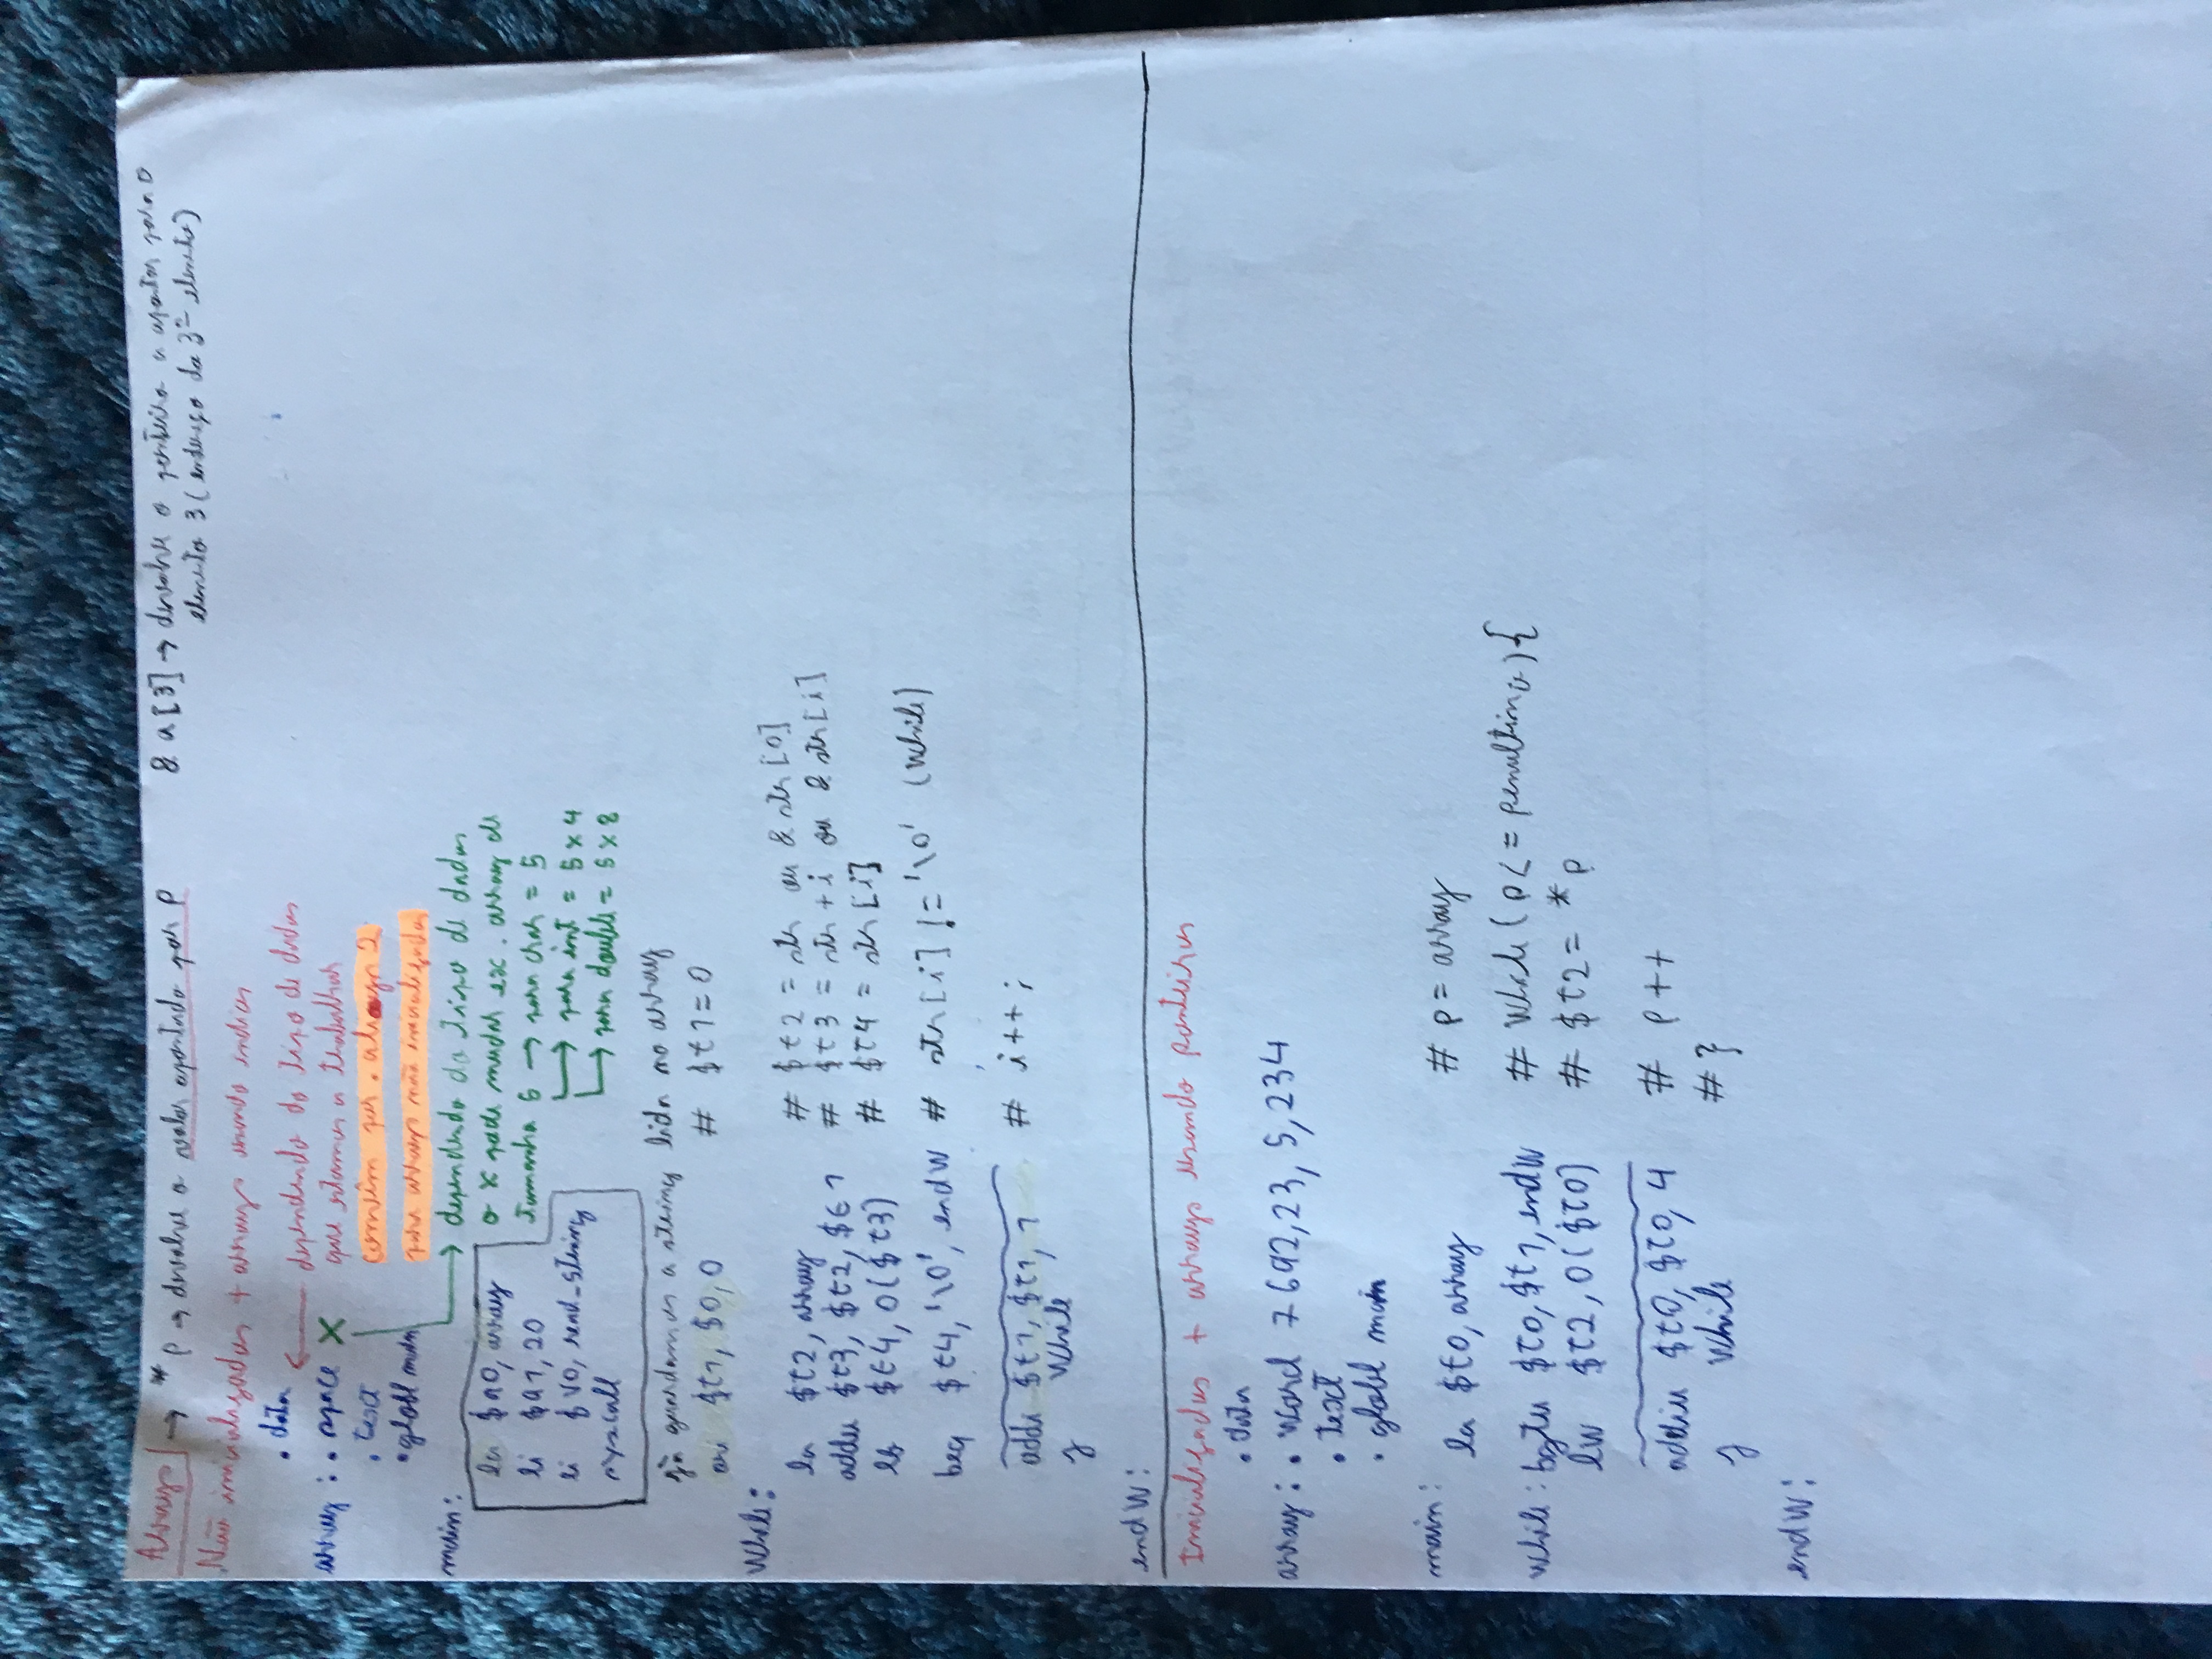 Arrays → *p → devolve o valor apontado por p
&a[3] → devolve o ponteiro a apontar para o
elemento 3 (endereço do 3º elemento)
Não inicializados + arrays usando indices
.data
← dependendo do tipo de dados
que estamos a trabalhar
array: .space X
.text
convêm por .align 2
.globl main
para arrays não inicializados
→ dependendo do tipo de dados
o X pode mudar ex. array de
tamanho 5 → para char = 5
→ para int = 5 x 4
→ para double = 5 x 8
main:
la $a0, array
li $a1, 20
li $v0, read_string
syscall
já guardamos a string lida no array
ori $t1, $0, 0 # $t1 = 0
While:
la $t2, array # $t2 = str ou &str[0]
addu $t3, $t2, $t1 # $t3 = str + i ou &str[i]
lb $t4, 0($t3) # $t4 = str[i]
beq $t4, '\0', endW # str[i] != '\0' (While)
addi $t1, $t1, 1 # i++;
j While
endW:
Inicializados + arrays usando ponteiros
.data
array: .word 7692, 23, 5, 234
.text
.globl main
main:
la $t0, array # p = array
while: bgtu $t0, $t1, endW # While (p <= penultimo) {
lw $t2, 0($t0) # $t2 = *p
addiu $t0, $t0, 4 # p++
j While # }
endW: